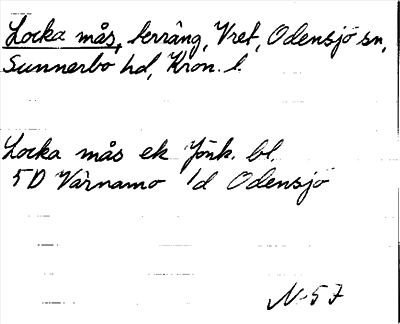 Locka mås, terräng, Vret, Odensjö sn,
Sunnerbo hd, Kron. l.
Locka mås ek Jönk. bl.
5D Värnamo 1d Odensjö
N-57